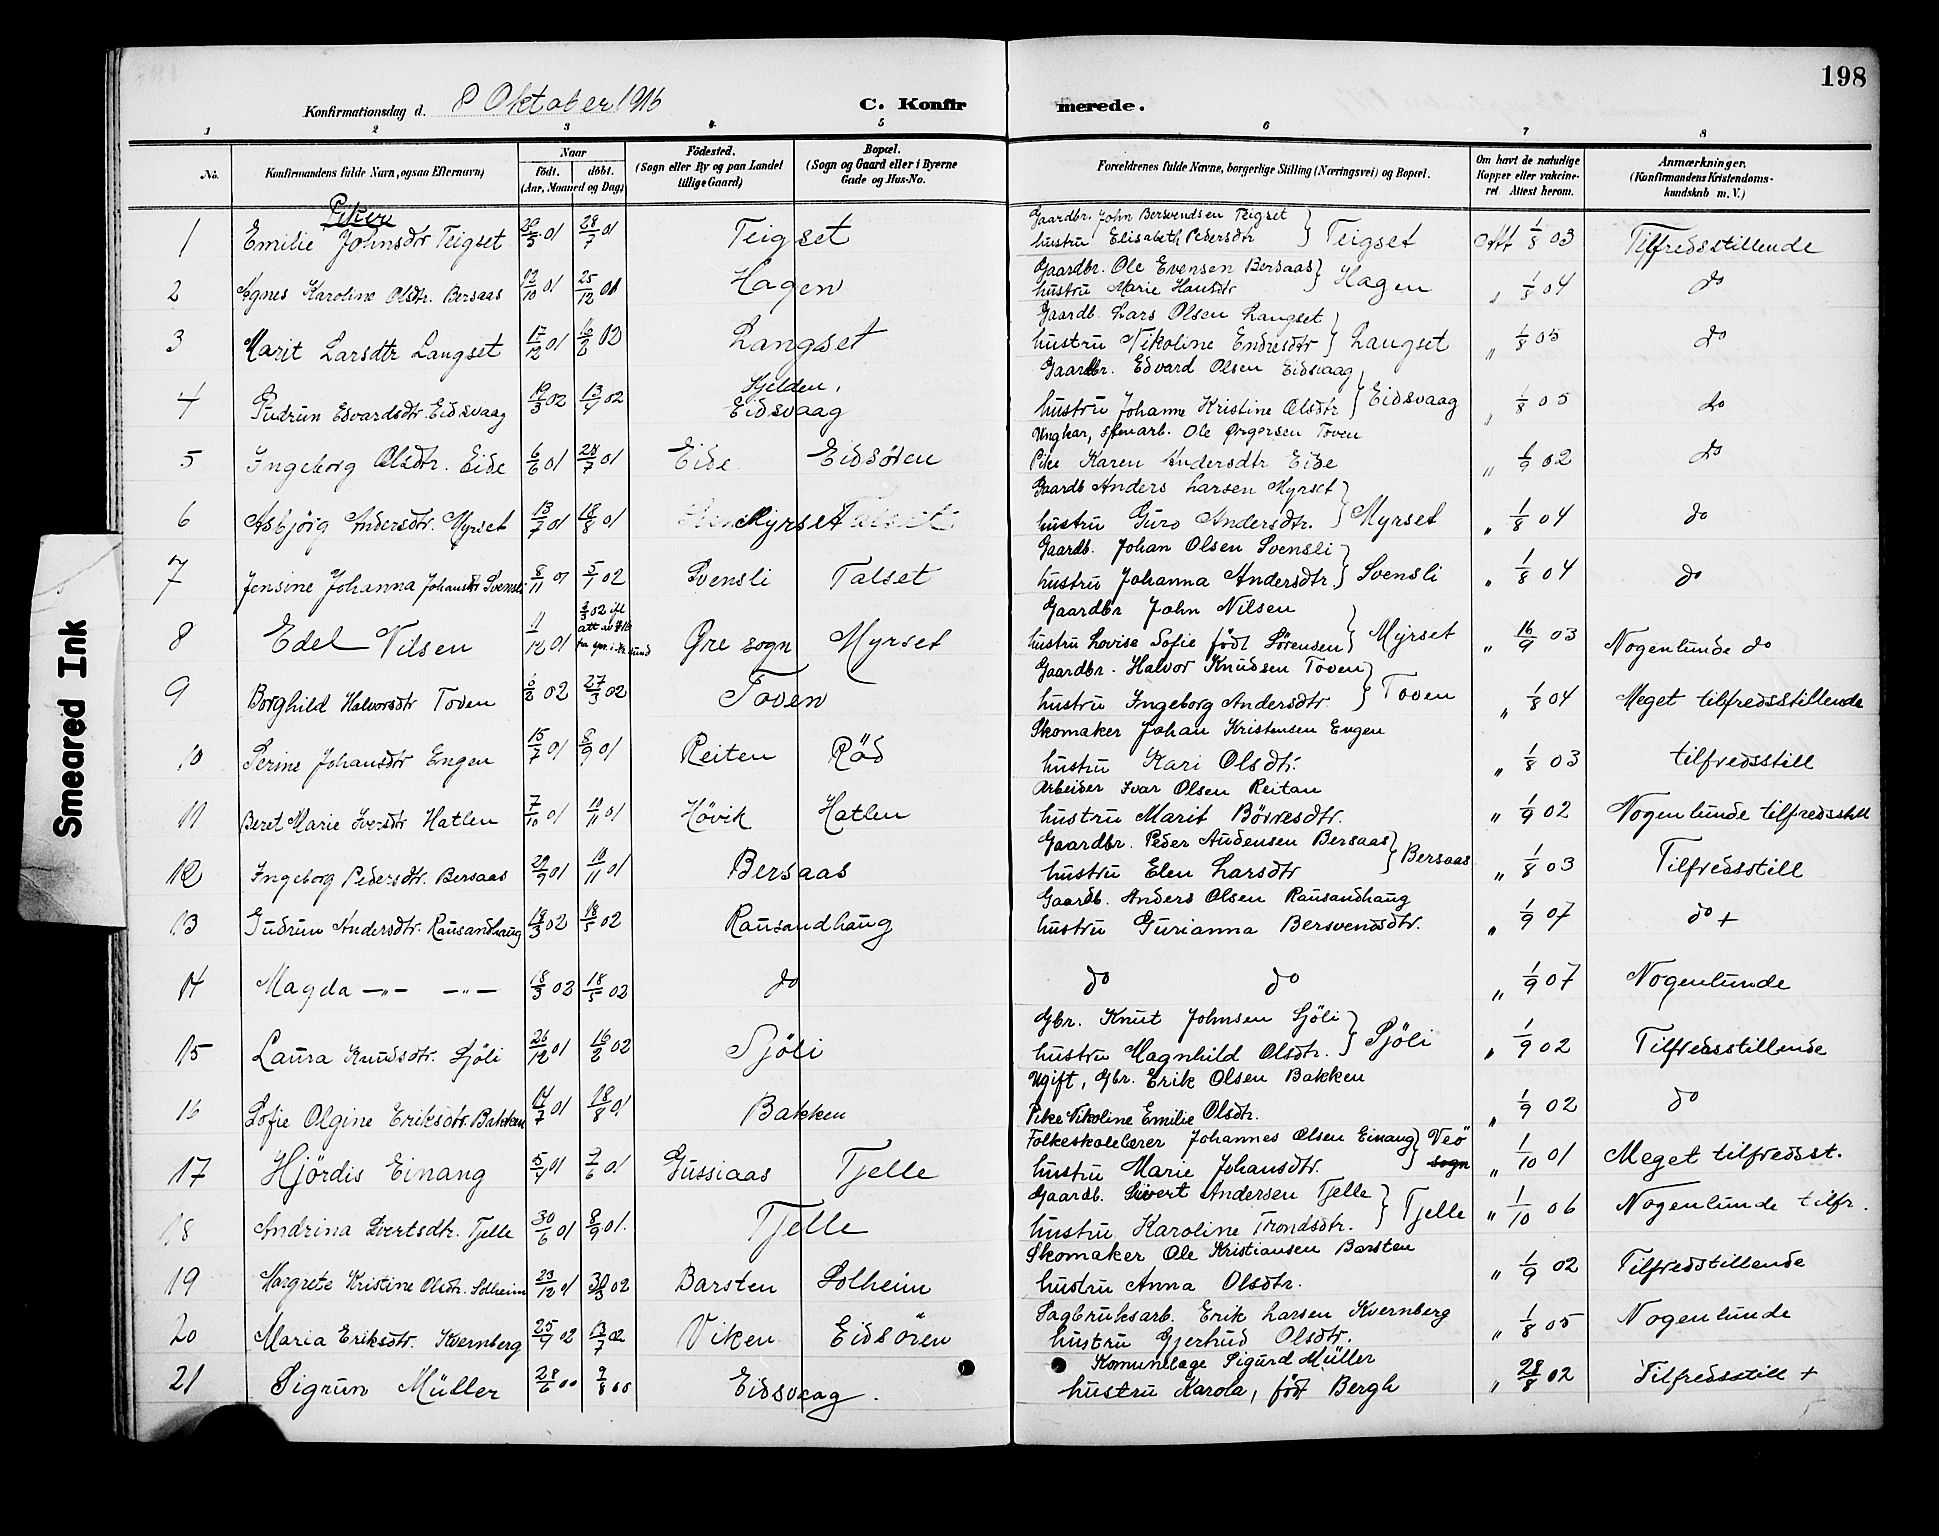 198
Konfirmationsdag d. 8 Oktober 1916 C. Konfirmerede.
1 2 3 4 5 6 7 8
No. Konfirmandens fulde Navn, ogsaa Efternavn) Naar födt. döbt. (Aar, Maaned og Dag) Födested. (Sogn eller By og paa Landet tillige Gaard) Bopæl. (Sogn og Gaard eller i Byerne Gade og Hus-No. Forældrenes fulde Navne, borgerlige Stilling (Næringsvei) og Bopæl. Om havt de naturlige Kopper eller vaccineret Attest herom. Anmærkninger, (Konfirmandens Kristendomskundskab m. V.)
Piker
1 Emilie Johnsdtr Teigset 01 28/7 01 Teigset Gaardbr. John Bersvendsen Teigset
hustru Elisabeth Pedersdtr } Teigset Att 1/8 03 Tilfredsstillende
2 Agnes Karoline Olsdtr. Bersaas 12/10 01 25/12 01 Hagen Gaardbr. Ole Evensen Bersaas
hustru Marie Hansdtr } Hagen " 1/8 04 do
3 Marit Larsdtr Langset 17/12 01 16/2 02 Langset Gaardb. Lars Olsen Langset
hustru Nikoline Endresdtr } Langset " 1/8 05 do
4 Gudrun Edvardsdtr. Eidsvaag 19/3 02 13/4 02 Kjelden, Eidsvaag Gaardbr. Edvard Olsen Eidsvaag
hustru Johanne Kristine Olsdtr } Eidsvaag " 1/8 05 do
5 Ingeborg Olsdtr. Eide 6/6 01 28/7 01 Eide Eidsören Ungkar, Ole Toven
Pike Karen Andersdtr Eide " 1/9 02 do
6 Asbjörg Andersdtr. Myrset 13/7 01 18/8 01 Myrset Gaardb Anders Larsen Myrset
hustru Guro Andersdtr. } Myrset " 1/8 04 do
7 Jensine Johanna Johansdtr Svensli 8/11 01 5/1 02 Svensli Talset Gaardb. Johan Olsen Svensli
hustru Johanna Andersdtr. } Svensli " 1/8 04 do
8 Edel Nilsen 11/12 01 02 Øre sogn Myrset Gaardbr John Nilsen
hustru Lovise Sofie født Sørensen } Myrset " 16/9 03 Nogenlunde do
9 Borghild Halvorsdtr Toven 02 27/3 02 Toven Gaardbr. Halvor Knudsen Toven
hustru Ingeborg Andersdtr } Toven " 1/8 04 Meget tilfredsstillende
10 Perine Johansdtr Engen 15/7 01 8/9 01 Reiten Röd Skomaker Johan Kristensen Engen
hustru Kari Olsdtr. " 1/8 03 tilfredsstill
11 Beret Marie Iversdtr Hatlen 7/10 01 10/11 01 Hövik Hatlen Arbeider Ivar Olsen Reitan
hustru Marit Börresdtr. " 1/9 02 Nogenlunde tilfredsstill
12 Ingeborg Pedersdtr. Bersaas 29/9 01 10/11 01 Bersaas Gaardbr. Peder Audensen Bersaas
hustru Elen Larsdtr } Bersaas " 1/8 03 Tilfredsstill
13 Gudrun Andersdtr. Rausandhaug 18/3 02 18/5 02 Rausandhaug Gaardb. Anders Olsen Rausandhaug
hustru Gurianna Bersvendsdtr. " 1/9 07 do +
14 Magda —"— —"— 18/3 02 18/5 02 do do do " 1/9 07 Nogenlunde
15 Laura Knudsdtr. Sjöli 26/12 01 16/2 02 Sjöli Gbr. Knut Johnsen Sjöli
hustru Magnhild Olsdtr. } Sjöli " 1/9 02 Tilfredsstillende
16 Sofie Olgine Eriksdtr. Bakken 14/7 01 18/8 01 Bakken Ugift, Gbr. Erik Olsen Bakken
Pike Nikoline Emilie Olsdtr. " 1/9 02 do
17 Hjördis Einang 5/4 01 2/6 01 Gussiaas Tjelle Folkeskolelærer Johannes Olsen Einang
hustru Marie Johansdtr. } Veö sogn " 1/10 01 Meget tilfredsst.
18 Andrina Sivertsdtr. Tjelle 30/6 01 8/9 01. Tjelle Gaardb. Sivert Andersen Tjelle
hustru Karoline Trondsdtr. } Tjelle " 1/10 06 Nogenlunde tilfr.
19 Margrete Kristine Olsdtr. Solheim 23/12 01 30/3 02 Barsten Solheim Skomaker Ole Kristiansen Barsten
hustru Anna Olsdtr. " 1/9 02 Tilfredsstillende
20 Maria Eriksdtr. Kvernberg 25/9 02 13/7 02 Viken Eidsören Sagbruksarb. Erik Larsen Kvernberg
hustru Gjertrud Olsdtr. " 1/8 05 Nogenlunde
21 Sigrun Müller 28/6 00 9/8 00 Eidsvaag. Sigurd Müller
hustru Karola, födt Bergh " 28/8 02 Tilfredsstill +
Smeared Ink